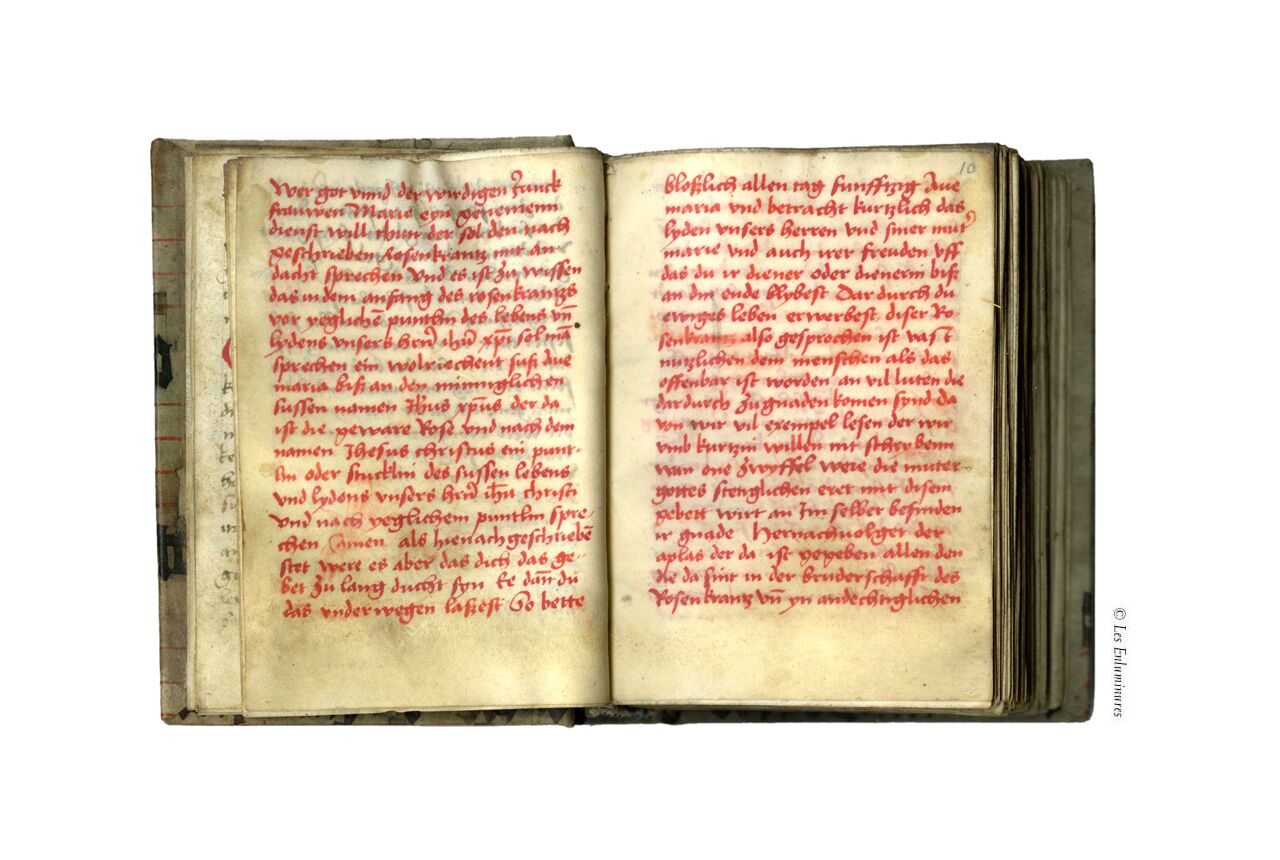 Wer got vnnd der wirdigen Junck
frauwen Marie eyn genemenn
dienst will thun der sol den nach
geschrieben Rosenkrantz mit an-
dacht sprechen vnd es ist zu wissen
das in dem anfang des rosenkrantzs
vor yeglichē puntlin des lebens vn̄
lydens vnsers hrn̄ ihū xp̄i sol mā
sprechen ein wolriechent suß aue
maria biß an den minniglichen
sussen namen Jhus xp̄us der da
ist die geware Rose vnd nach dem
namen Jhesus christus ein punt-
lin oder stucklin des sussen lebens
vnd lydens vnsers hrn̄ ihū christi
vnd nach yeglichem puntlin spre-
chen Amen als hienach geschriebē
stet were es aber das dich das ge-
bet zu lang ducht syn Ee dan̄ du
das vnderwegen lassest So bette
10
bloßlich allen tag funfftzig Aue
maria vnd betracht kurtzlich das
lyden vnsers herren vnd siner mut
marie vnd auch irer freuden vff
das du ir diener oder dienerin biß
an din ende blybest Dar durch du
ewiges leben erwerbest diser Ro-
senkrantz also gesprochen ist vast
nutzlichen dem menschen als das
offenbar ist worden an vil luten die
dardurch zu gnaden komen synd da
von wir vil exempel lesen der wir
vmb kurtzin willen nit schrybenn
wan one zwyffel were die muter
gottes stenglichen eret mit disem
gebett wirt an Im selber befinden
ir gnade Hernachuolget der
aplas der da ist gegeben allen den
die da sint in der bruderschafft des
Rosenkrantz vn̄ yn andechtiglichen
© Les Enluminures